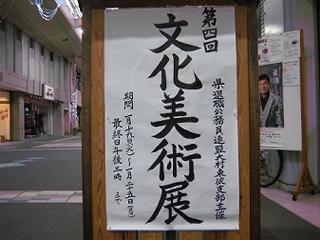 第四回
文化美術展
県退職公務員連盟大村東彼支部主催
期間 一月十九日(火)〜一月二十五日(月)
最終日午後三時まで